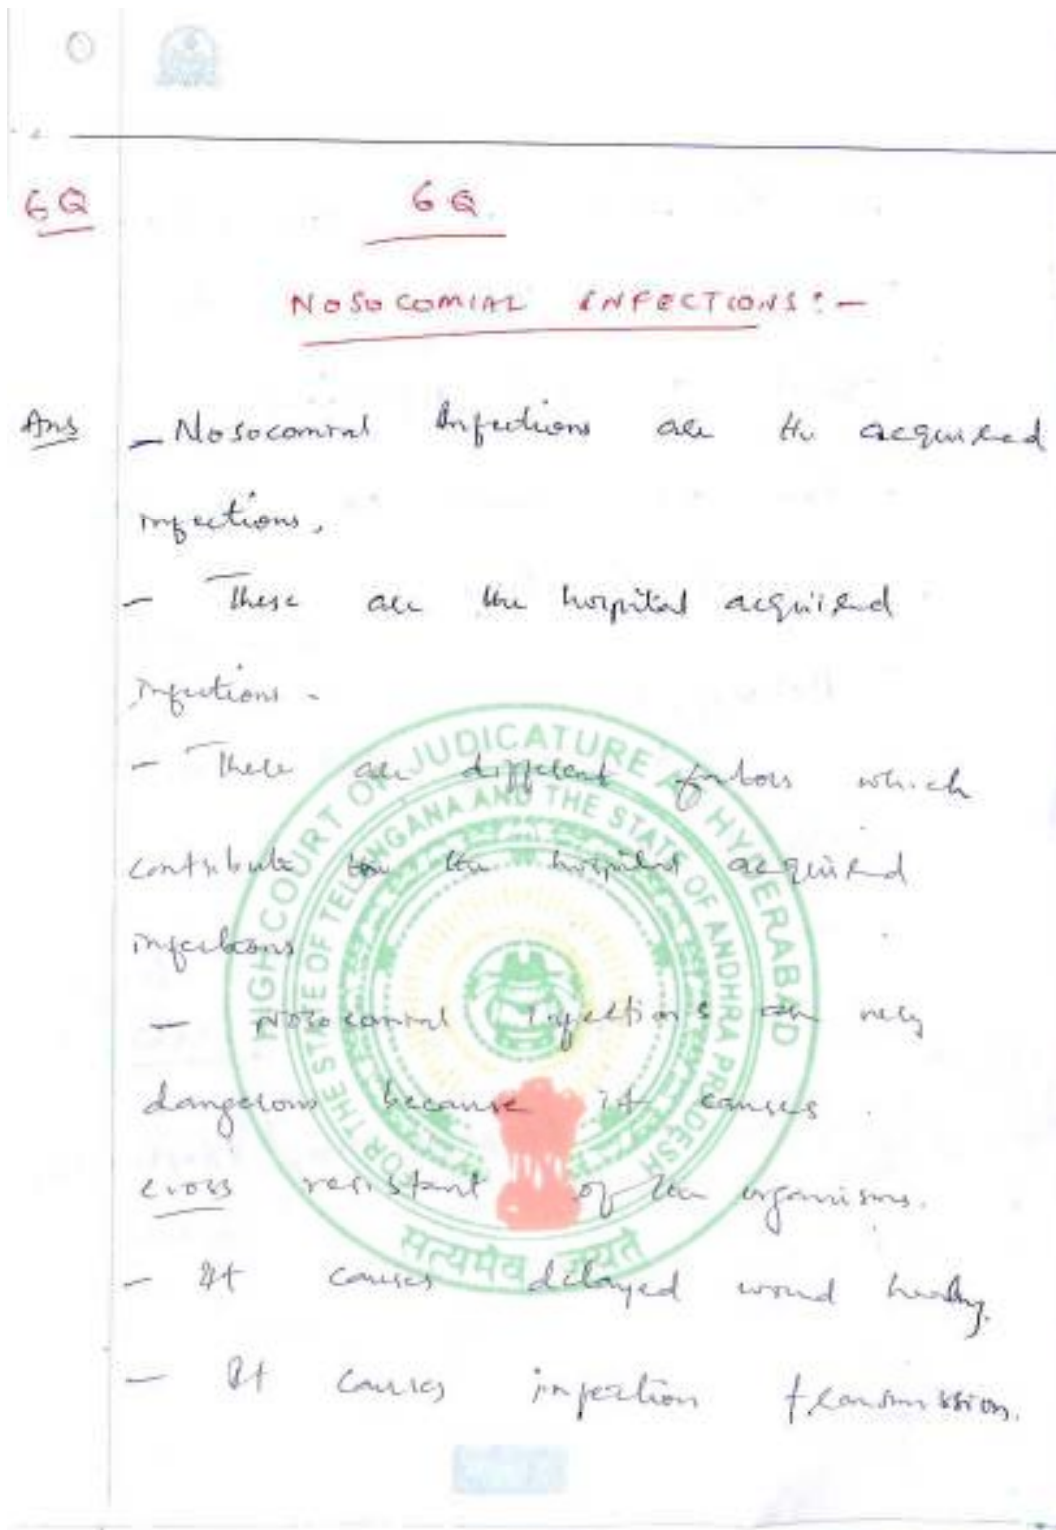 6Q 6Q
NOSOCOMIAL INFECTIONS:-
Ans - Nosocomial Infections are the acquired
infections.
- These are the hospital acquired
infections -
- There are different factors which
contribute the hospital acquired
infections
- Nosocomial Infections are very
dangerous because it causes
cross resistant of the organisms.
- It causes delayed wound healing.
- It causes infection transmission.
HIGH COURT OF JUDICATURE AT HYDERABAD
FOR THE STATE OF TELANGANA AND THE STATE OF ANDHRA PRADESH
सत्यमेव जयते